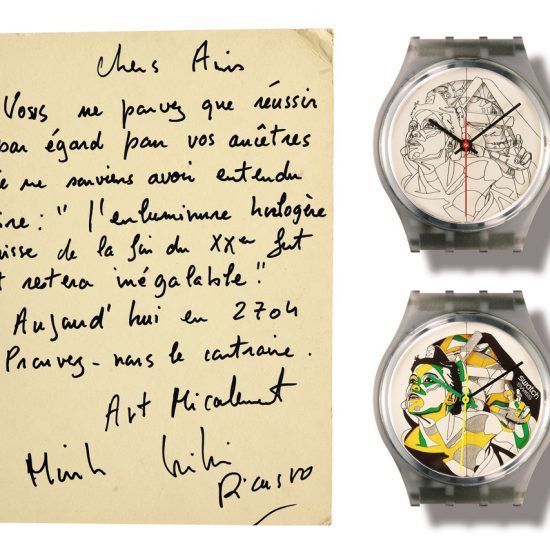 Chers Amis
Vous ne pouvez que réussir
par égard pour vos ancêtres
Je me souviens avoir entendu
dire : " l'enluminure horlogère
suisse de la fin du XXem fut
et restera inégalable."
Aujourd'hui en 2704
Prouvez-nous le contraire.
Art Micalement
Kiki
Picasso
swatch